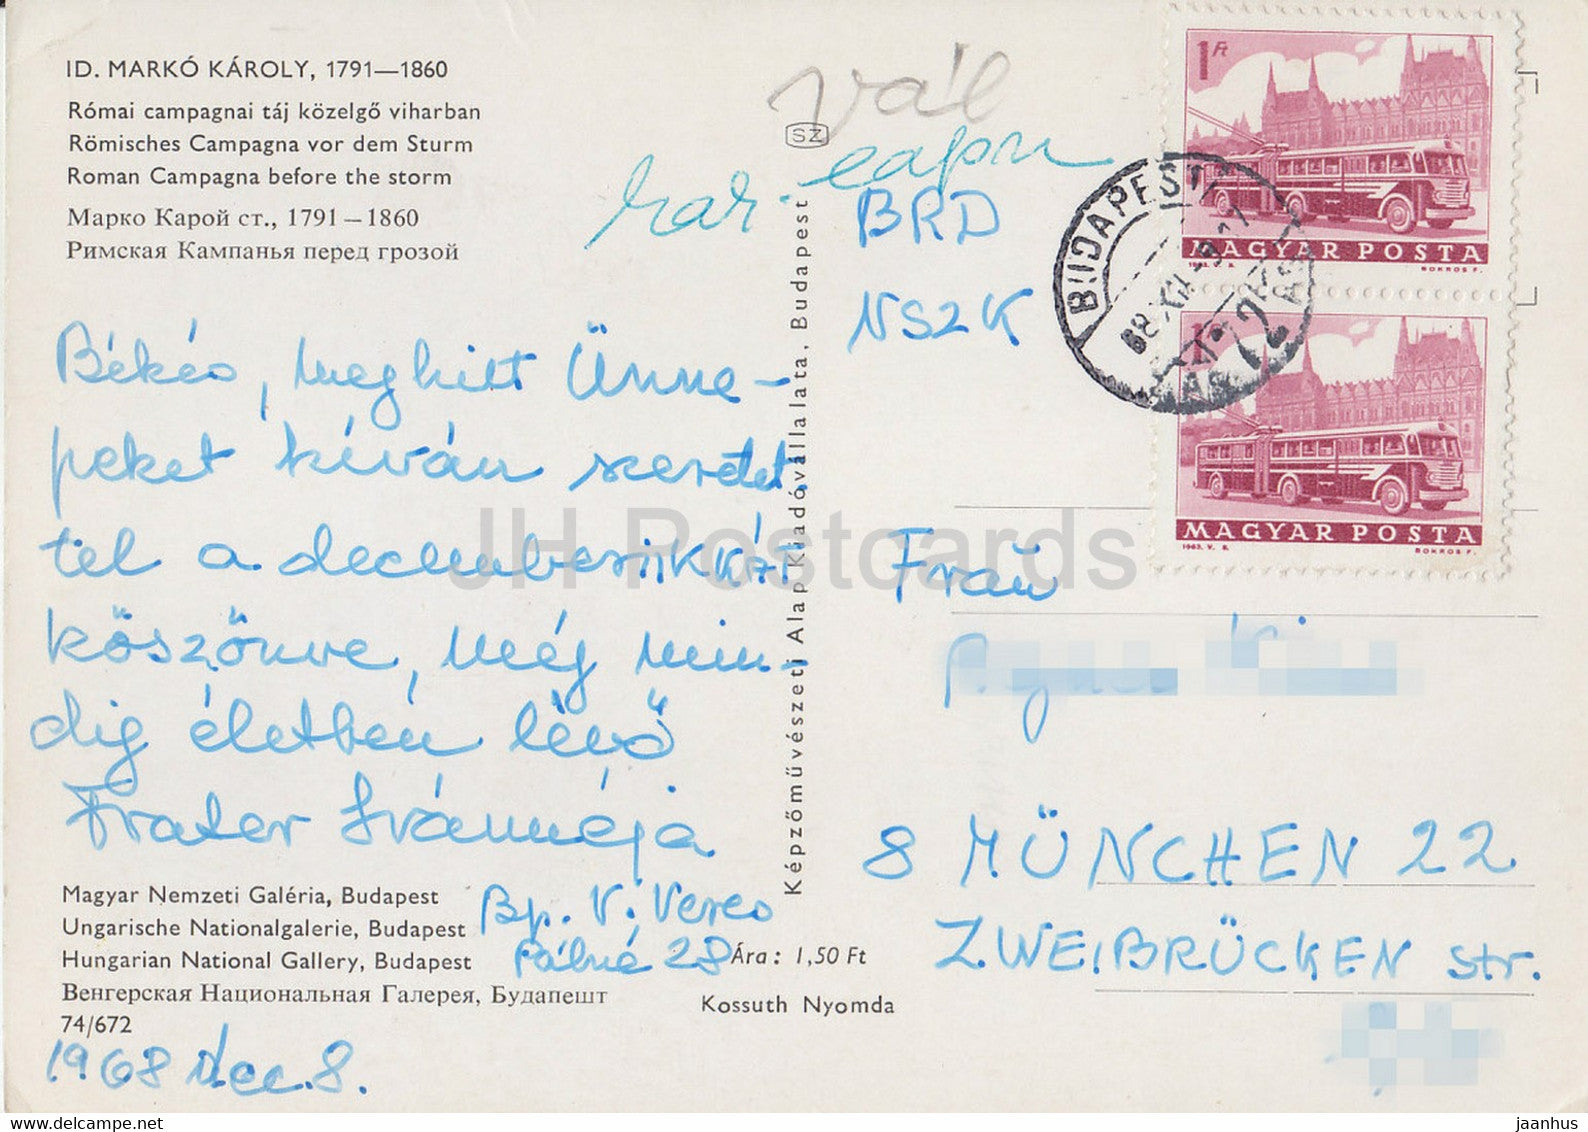 ID. MARKÓ KÁROLY, 1791—1860
Római campagnai táj közelgő viharban
Römisches Campagna vor dem Sturm
Roman Campagna before the storm
Марко Карой ст., 1791 – 1860
Римская Кампанья перед грозой
Békés, meghitt Ünne-
peket kíván szeretet
tel a decemberikkát
köszönve, még min-
dig életben lévő
Frater Ivánnéja
Bp. V. Veres
Pálné 28
Magyar Nemzeti Galéria, Budapest
Ungarische Nationalgalerie, Budapest
Hungarian National Gallery, Budapest
Венгерская Национальная Галерея, Будапешт
74/672
1968 dec. 8.
Ára: 1,50 Ft
Kossuth Nyomda
Képzőművészeti Alap Kiadóvállalata, Budapest
SZ
vál
BRD
NSZK
BUDAPEST
1 Ft
MAGYAR POSTA
1963. V. B.
BOKROS F.
MAGYAR POSTA
1963. V. B.
BOKROS F.
Frau
8 MÜNCHEN 22
ZWEIBRÜCKEN str.
JH Postcards
delcampe.net
jaanhus